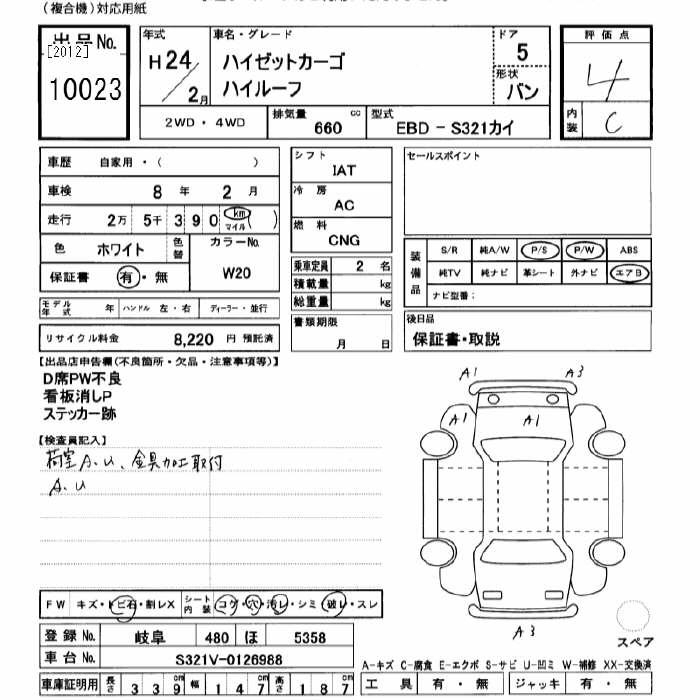 (複合機)対応用紙
出品No.
[2012]
10023
年式
H24/2月
車名・グレード
ハイゼットカーゴ
ハイルーフ
ドア
5
形状
バン
評価点
4
内装
C
2WD・4WD
排気量
660
cc
型式
EBD－S321カイ
車歴 自家用・( )
車検 8 年 2 月
走行 2万 5千 3 9 0 km マイル ( )
色 ホワイト 色替
カラーNo.
W20
保証書 有・無
モデル年式 年 ハンドル 左・右 ディーラー・並行
リサイクル料金 8,220 円 預託済
シフト
IAT
冷房
AC
燃料
CNG
乗車定員 2 名
積載量 kg
総重量 kg
書類期限
月 日
セールスポイント
装備品
S/R 純A/W P/S P/W ABS
純TV 純ナビ 革シート 外ナビ エアB
ナビ型番:
後日品
保証書・取説
【出品店申告欄(不良箇所・欠品・注意事項等)】
D席PW不良
看板消しP
ステッカー跡
【検査員記入】
荷室A.U、金具加工取付
A.U
A1 A3
A1 A1
A3
スペア
FW キズ・トビ石・割レX シート内装 コゲ・穴・汚レ・シミ・破レ・スレ
登録No. 岐阜 480 ほ 5358
車台No. S321V-0126988
車庫証明用 長さ 3 3 9 幅 1 4 7 高さ 1 8 7
A-キズ C-腐食 E-エクボ S-サビ U-凹ミ W-補修 XX-交換済
工具 有・無 ジャッキ 有・無